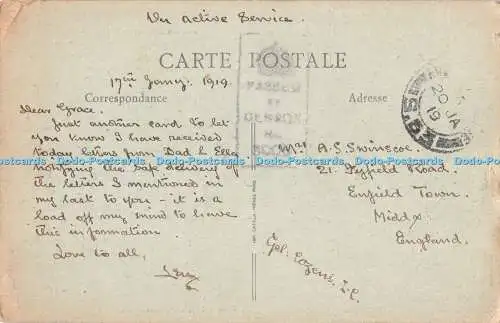 On Active Service.
CARTE POSTALE
17th Jany. 1919.
Correspondance
Dear Grace.
Just another card to let
you know I have received
today letters from Dad & Ella
notifying the safe delivery of
the letters I mentioned in
my last to you - it is a
load off my mind to have
this information.
Love to all,
Adresse
A.G. Swinscoe.
21. Road.
Enfield Town.
Middx
England.
PASSED
BY
CENSOR
No
20 JA
19
Dodo-Postcards Dodo-Postcards Dodo-Postcards Dodo-Postcards Dodo-Postcards